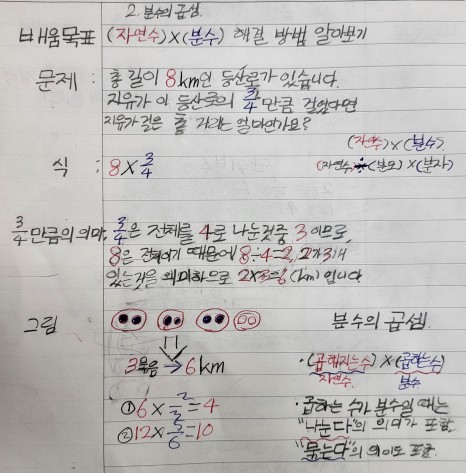 2. 분수의 곱셈.
배움목표 (자연수)×(분수) 해결 방법 알아보기
문제 : 총 길이 8km인 등산로가 있습니다.
지유가 이 등산로의 3/4 만큼 걸었다면
지유가 걸은 총 거리는 얼마인가요?
(자연수)×(분수)
식 : 8×3/4
(자연수)÷(분모)×(분자)
3/4만큼의 의미, 3/4은 전체를 4로 나눈것중 3이므로,
8은 전체이기 때문에 8÷4=2, 2가 3개
있는것을 의미하므로 2×3=6(km)입니다
그림
3묶음 → 6km
①6×2/3=4
②12×5/6=10
분수의 곱셈.
·(곱해지는수)×(곱하는수)
자연수. 분수
·곱하는 수가 분수일 때는
"나눈다"의 의미가 포함.
"묶는다"의 의미도 포함.